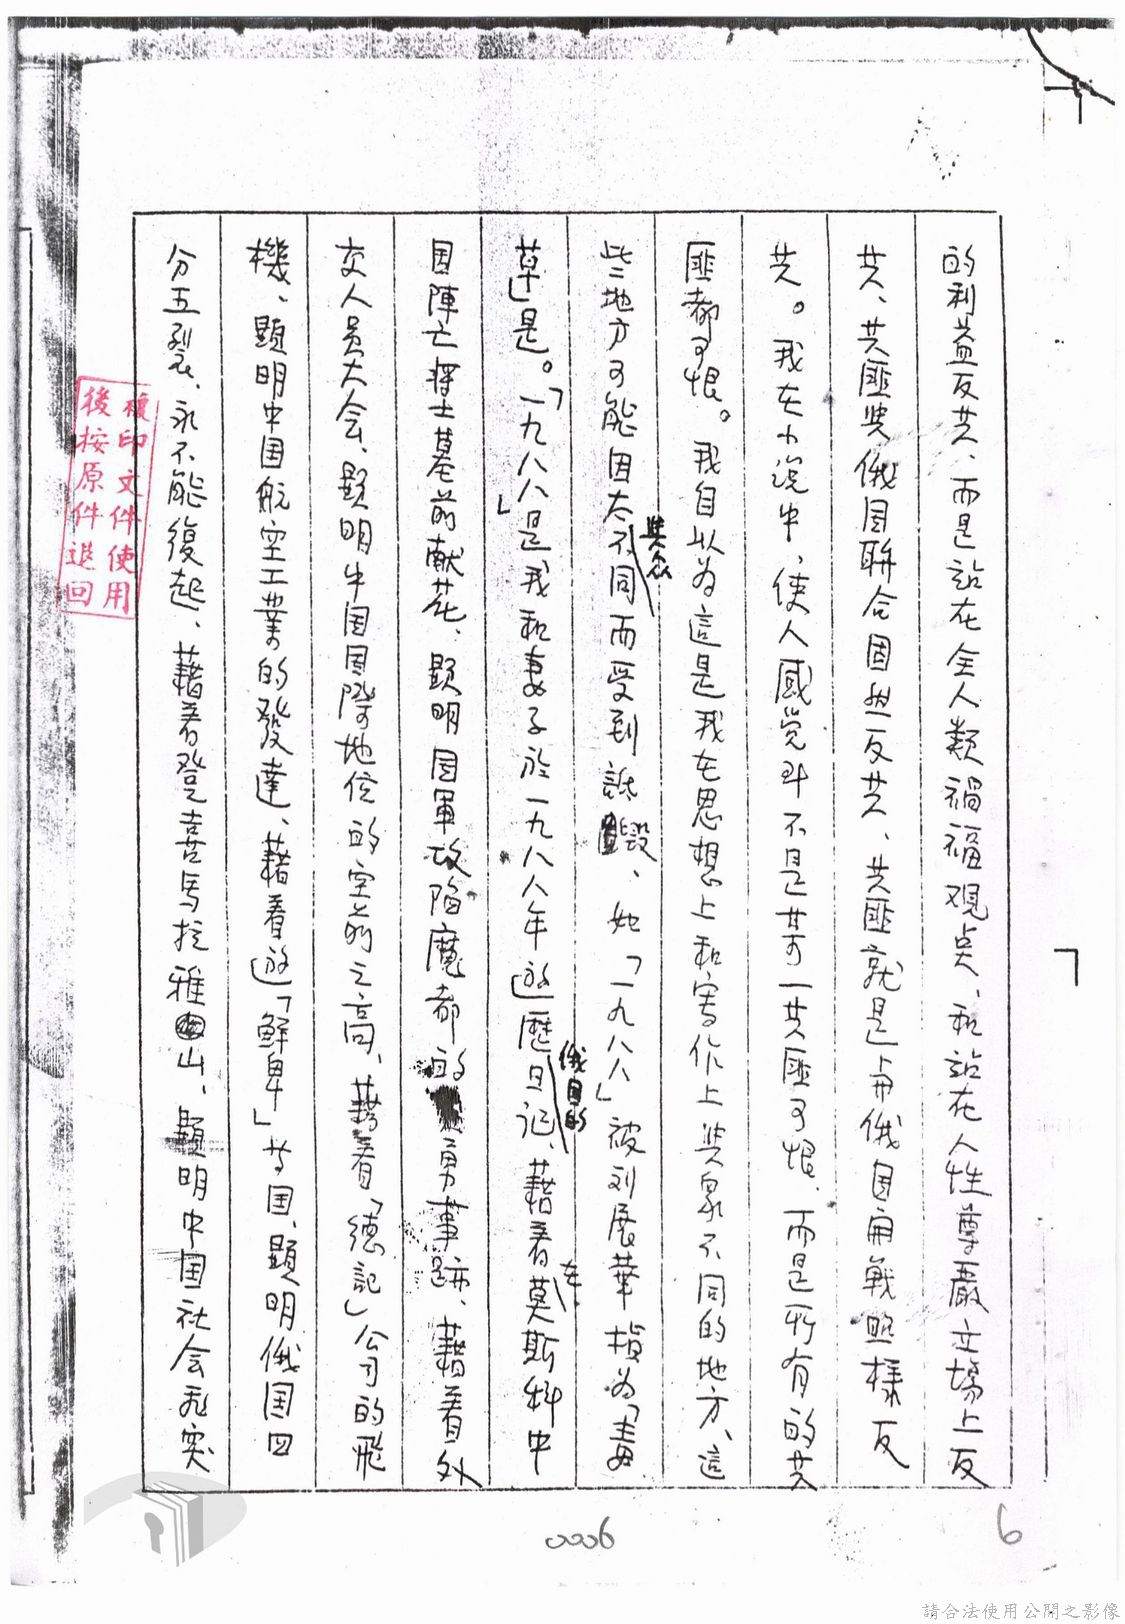 的利益反共、而是站在全人類禍福观点、和站在人性尊嚴立場上反
共、共匪与俄国联合固然反共、共匪就是与俄国开戰照樣反
共。我在小说中，使人感觉到不是某一共匪可恨、而是所有的共
匪都可恨。我自以为這是我在思想上和寫作上与衆不同的地方、這
些地方可能因太与众不同而受到詆毁、如「一九八八」被刘展華指为「毒
草」是。「一九八八」是我和妻子於一九八八年遊歷俄国的日記、藉着在莫斯科中
国陣亡将士墓前献花、顕明国軍攻陷魔都的英勇事跡、藉着外
交人员大会、顕明中国国際地位的空前之高、藉着「德記」公司的飛
機、顕明中国航空工業的發達、藉着遊「鮮卑」共国、顕明俄国四
分五裂、永不能復起、藉着登喜馬拉雅山、顕明中国社会充实
複印文件使用
後按原件退回
0006
6
請合法使用公開之影像